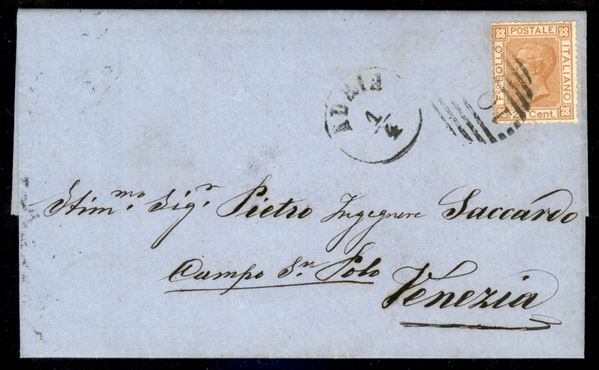 POSTALE
BOLLO
ITALIANO
20 Cent.
ADRIA
1/4
Stim.mo Sigr. Pietro Ingegnere Saccardo
Campo Sn Polo
Venezia